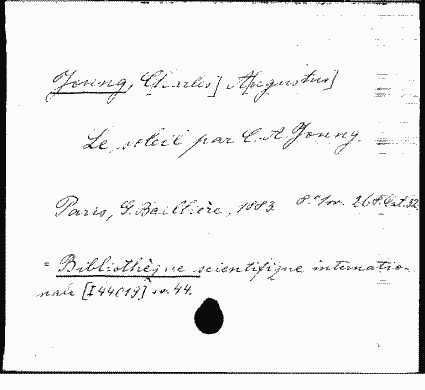 Young, Charles] Augustus]
Le soleil par C. A. Young.
Paris, G. Baillière, 1883. 8.° 268
= Bibliothèque scientifique internatio-
nale [I 44019] v. 44.